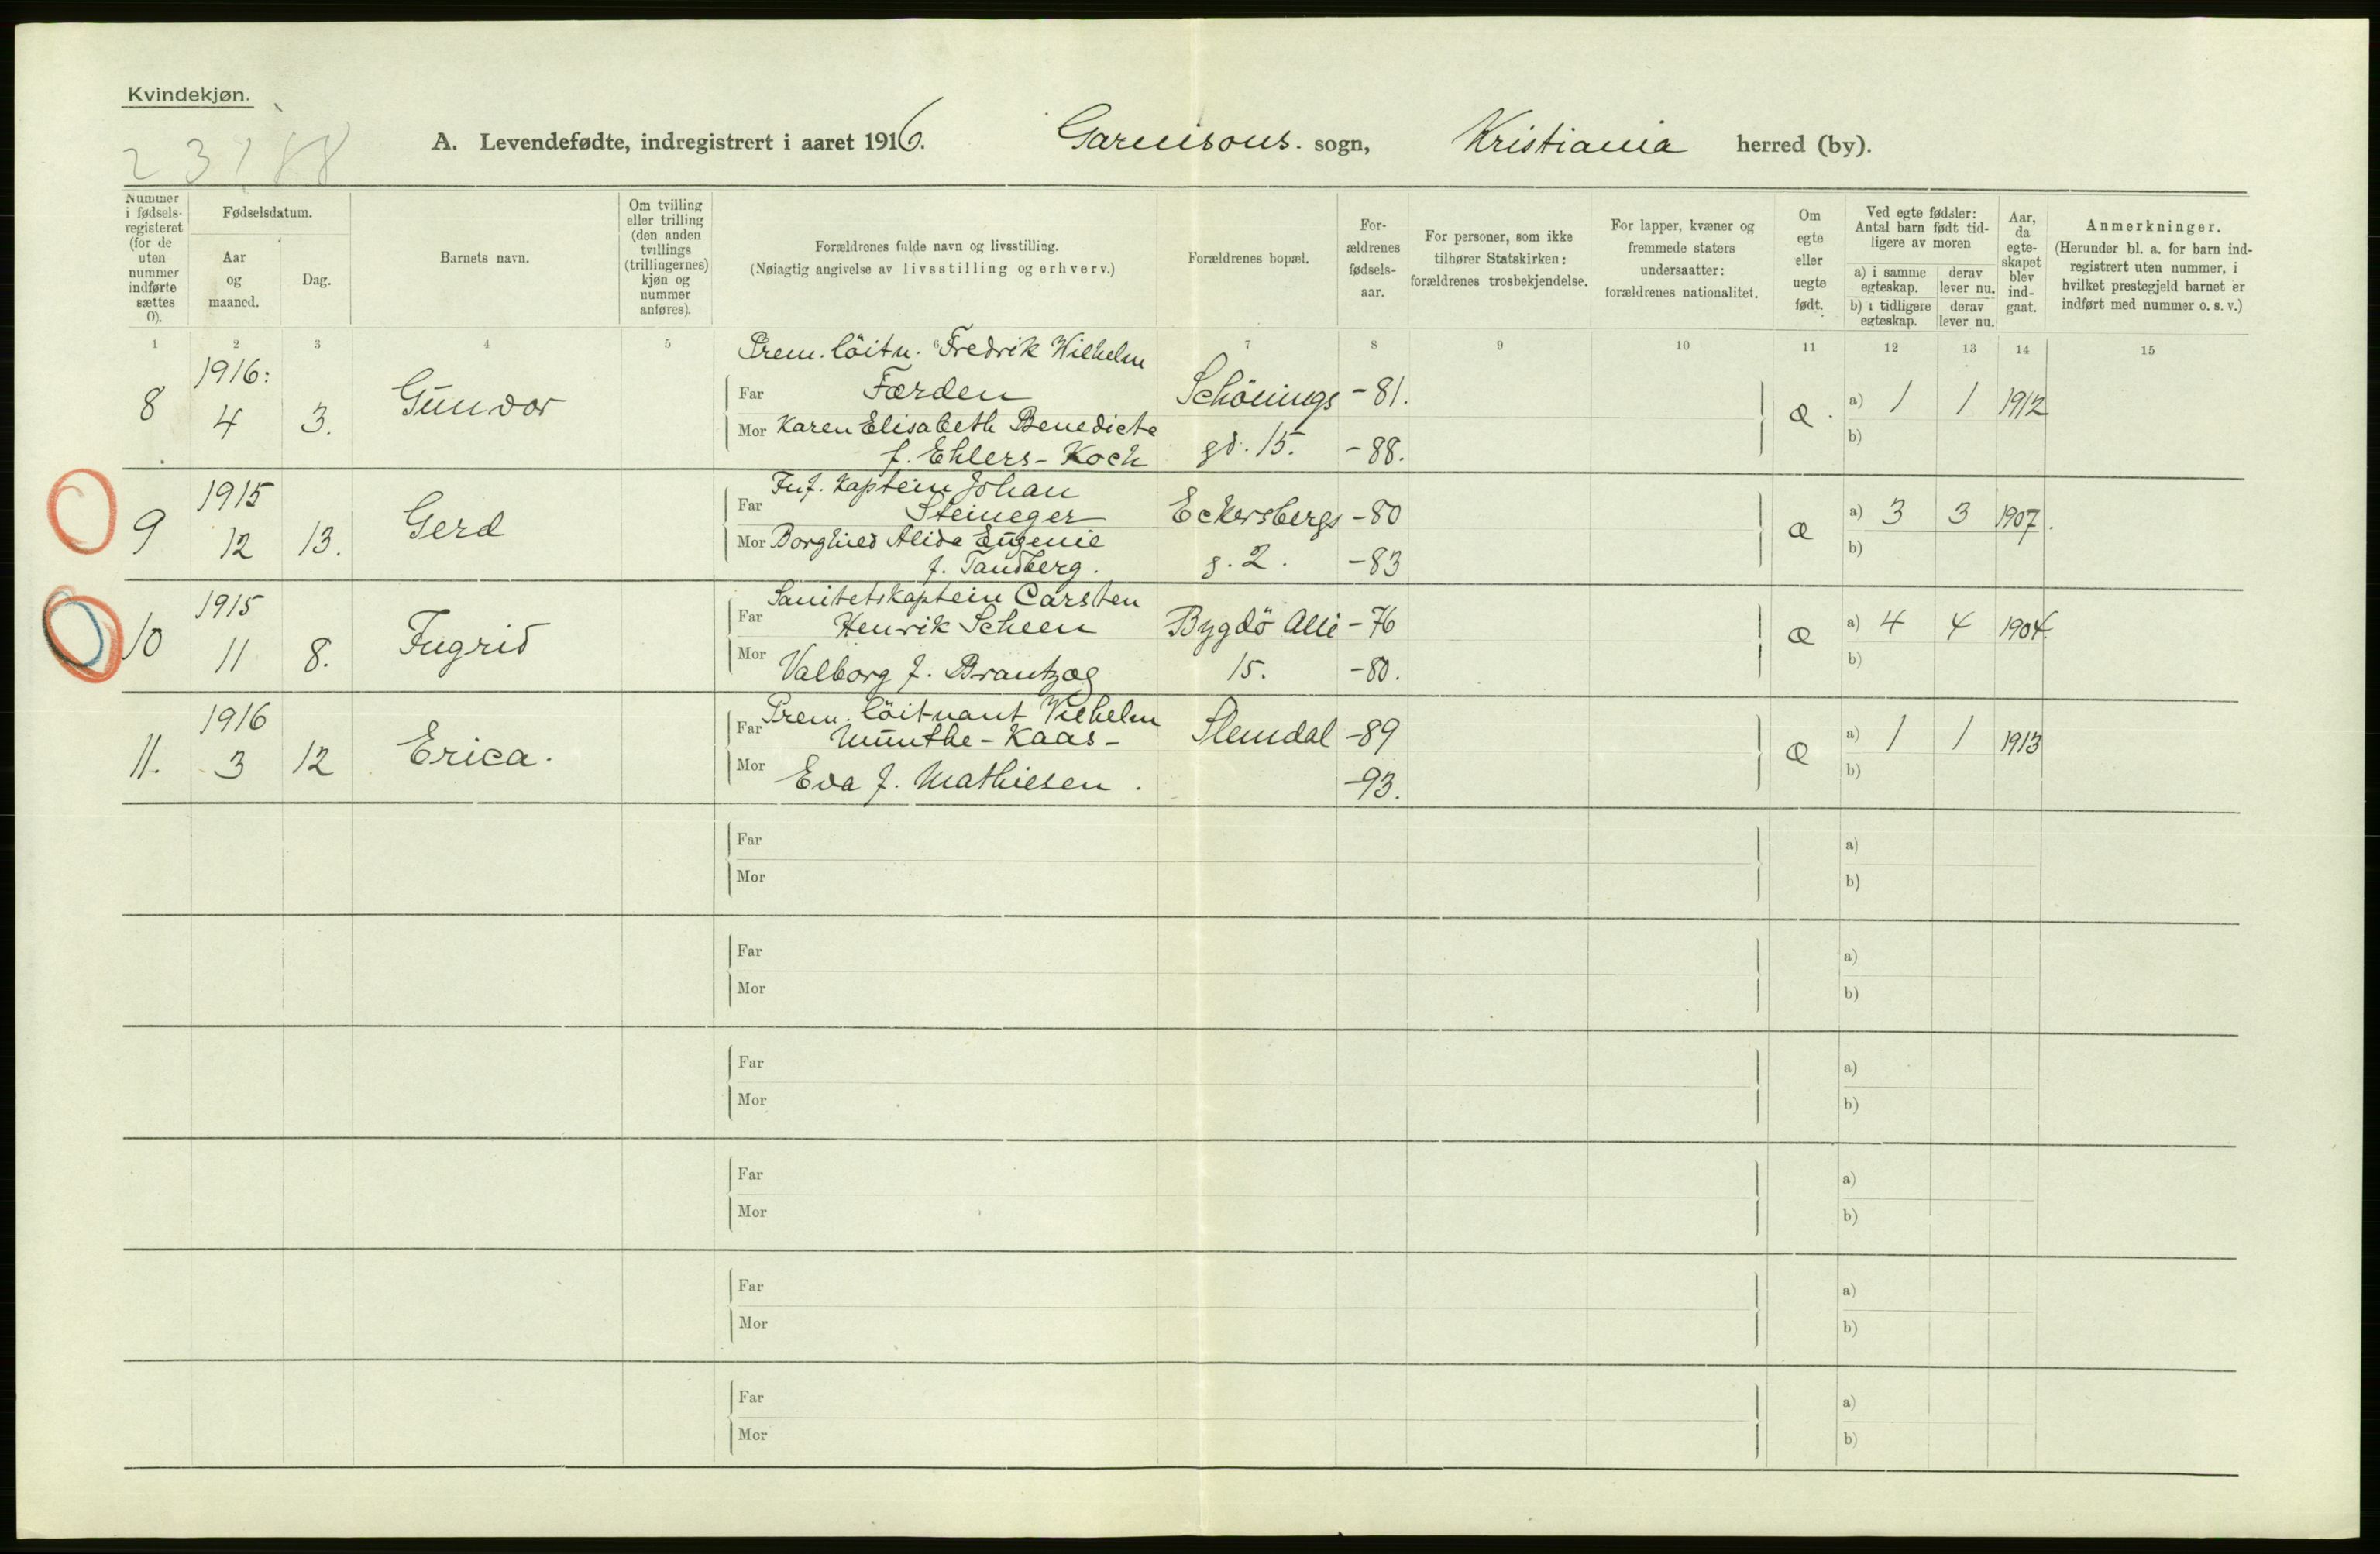 Kvindekjøn.
A. Levendefødte, indregistrert i aaret 1916. Garnisons. sogn, Kristiania herred (by).
23188
Nummer i fødsels- registeret (for de uten nummer indførte sættes 0).
Fødselsdatum.
Aar og maaned.
Dag.
Barnets navn.
Om tvilling eller trilling (den anden tvillings (trillingernes) kjøn og nummer anføres).
Forældrenes fulde navn og livsstilling.
(Nøiagtig angivelse av livsstilling og erhverv.)
Forældrenes bopæl.
For- ældrenes fødsels- aar.
For personer, som ikke tilhører Statskirken: forældrenes trosbekjendelse.
For lapper, kvæner og fremmede staters undersaatter: forældrenes nationalitet.
Om egte eller uegte født.
Ved egte fødsler: Antal barn født tid- ligere av moren
a) i samme egteskap.
derav lever nu.
b) i tidligere egteskap.
derav lever nu.
Aar, da egte- skapet blev ind- gaat.
Anmerkninger.
(Herunder bl. a. for barn ind- registrert uten nummer, i hvilket prestegjeld barnet er indført med nummer o. s. v.)
1 2 3 4 5 6 7 8 9 10 11 12 13 14 15
Prem. löitn. Fredrik Wilhelm
8 1916: 4 3. Gunvor Far Færden Schönings -81. æ. a) 1 1 1912
Mor Karen Elisabeth Benedicte
f. Ehlers-Koch gd. 15. -88. b)
Inf. Kaptein Johan
9 1915 12 13. Gerd Far Steineger Eckersbergs -80 æ a) 3 3 1907.
Mor Borghild Alida Eugenie
f. Tandberg. g. 2. -83 b)
Sanitetskaptein Carsten
10 1915 11 8. Ingrid Far Henrik Scheen Bygdö Alle -76 æ a) 4 4 1904.
Mor Valborg f. Brantzæg 15. -80. b)
Prem. löitnant Vilhelm
11. 1916 3 12 Erica. Far Munthe-Kaas- Slemdal -89 æ a) 1 1 1913
Mor Eva f. Mathiesen. -93. b)
Far a)
Mor b)
Far a)
Mor b)
Far a)
Mor b)
Far a)
Mor b)
Far a)
Mor b)
Far a)
Mor b)